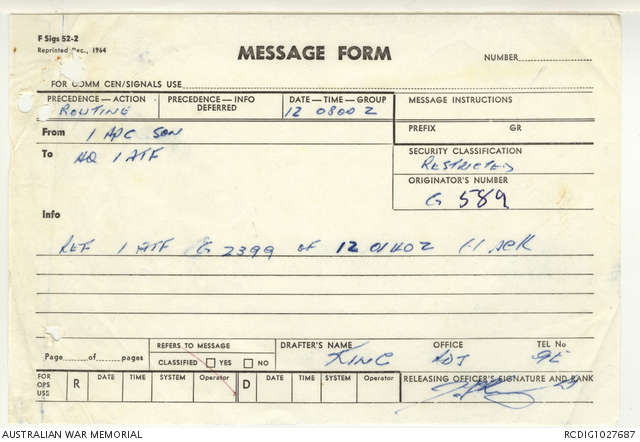 F Sigs 52-2
Reprinted Dec., 1964
MESSAGE FORM
NUMBER
FOR COMM CEN/SIGNALS USE
PRECEDENCE — ACTION
ROUTINE
PRECEDENCE — INFO
DEFERRED
DATE — TIME — GROUP
12 0800 Z
MESSAGE INSTRUCTIONS
PREFIX GR
From 1 APC SQN
To HQ 1 ATF
SECURITY CLASSIFICATION
RESTRICTED
ORIGINATOR'S NUMBER
G 589
Info
REF 1 ATF G 2399 of 12 0140 Z (.) ACK
Page of pages
REFERS TO MESSAGE
CLASSIFIED YES NO
DRAFTER'S NAME
KING
OFFICE
ADJ
TEL No
FOR OPS USE
R DATE TIME SYSTEM Operator D DATE TIME SYSTEM Operator
RELEASING OFFICER'S SIGNATURE AND RANK
AUSTRALIAN WAR MEMORIAL
RCDIG1027687